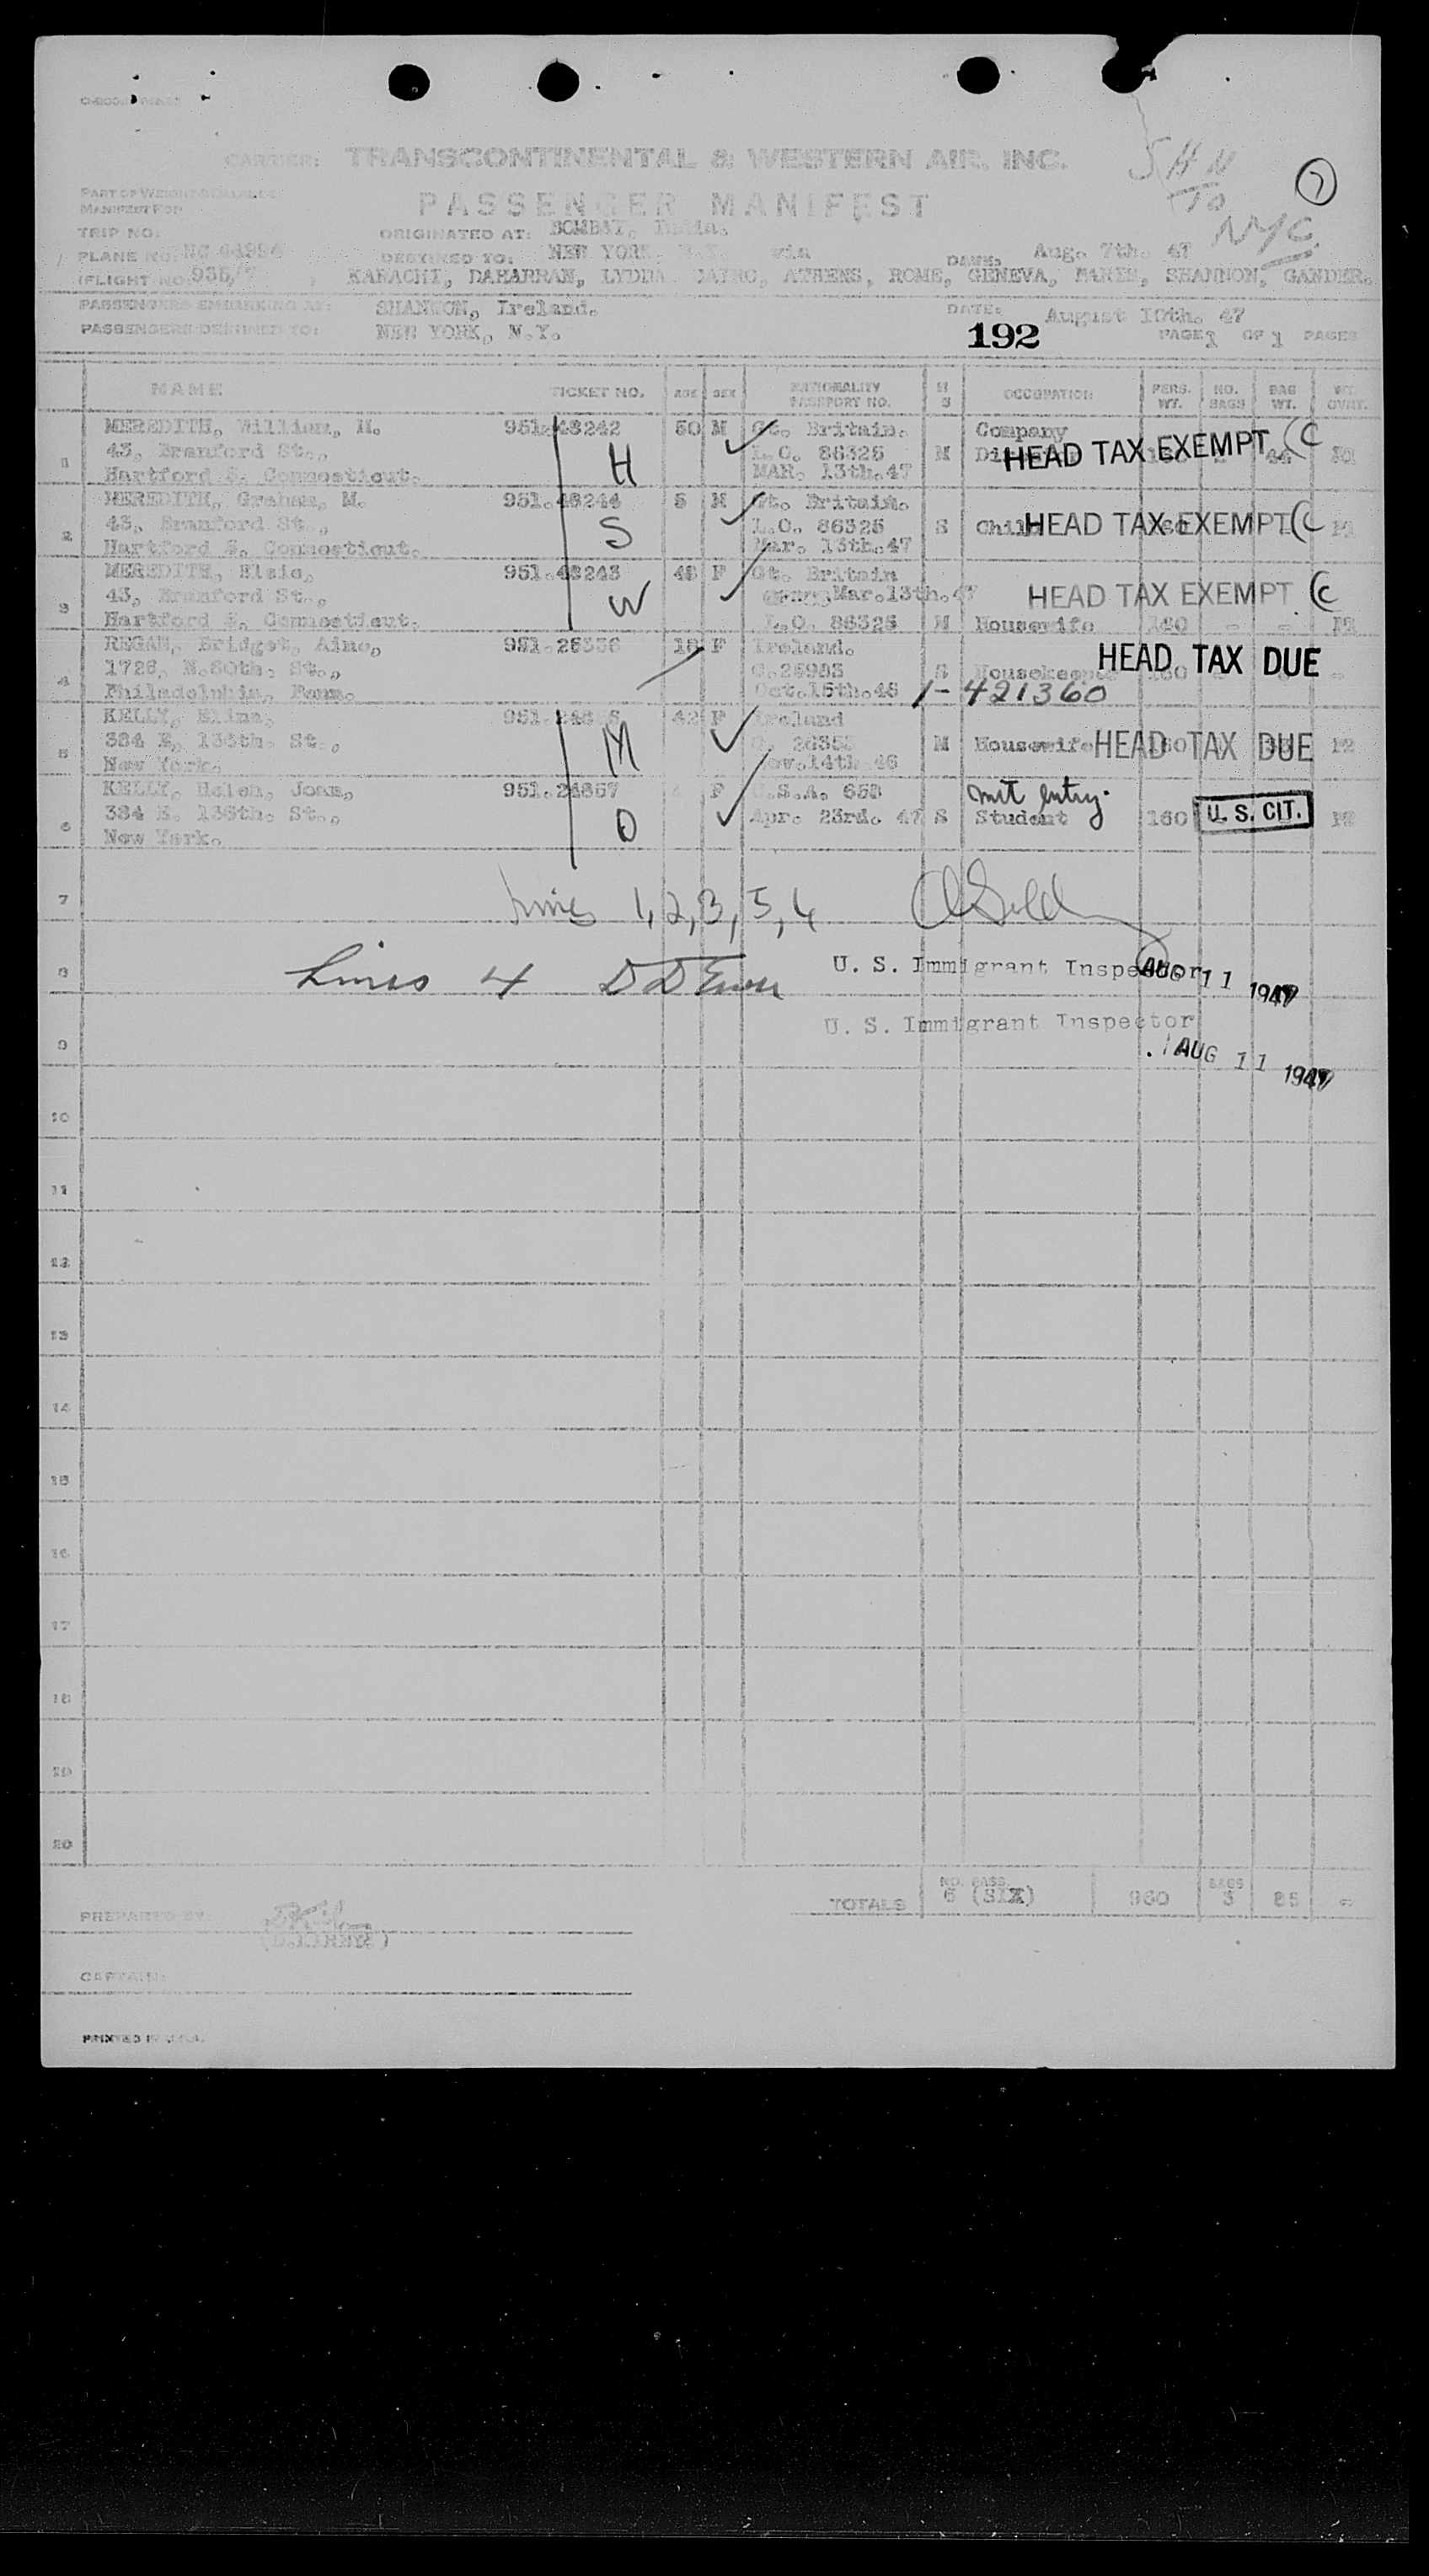 CARRIER: TRANSCONTINENTAL & WESTERN AIR, INC.
SHN
TO
NYC.
7
PASSENGER MANIFEST
PART OF WEIGHT & BALANCE
MANIFEST FOR
TRIP NO.
ORIGINATED AT: BOMBAY, India.
PLANE NO. NC
DESTINED TO: NEW YORK, N.Y. via
DATE: Aug. 7th. 47
(FLIGHT NO. 935/7 )
KARACHI, DAHARRAN, LYDDA CAIRO, ATHENS, ROME, GENEVA, PARIS, SHANNON, GANDER.
PASSENGERS EMBARKING AT: SHANNON, Ireland.
DATE: August 10th. 47
PASSENGERS DESTINED TO: NEW YORK, N.Y.
192
PAGE 1 OF 1 PAGES
NAME TICKET NO. AGE SEX NATIONALITY PASSPORT NO. M S OCCUPATION PERS. WT. NO. BAGS BAG WT. WT. OVHT.
MEREDITH, William, H. 951.48242 50 M Gt. Britain. Company
1 43, Branford St., H L.O. 86325 M HEAD TAX EXEMPT (C
Hartford 5. Connecticut. MAR. 13th.47
MEREDITH, Graham, M. 951.48244 5 M Gt. Britain.
2 43, Branford St., S L.O. 86325 S Child HEAD TAX EXEMPT (C
Hartford 5. Connecticut. Mar. 13th.47
MEREDITH, Elsie, 951.48243 48 F Gt. Britain
3 43, Branford St., W Mar.13th.47 HEAD TAX EXEMPT (C
Hartford 5. Connecticut. L.O. 86325 M Housewife 140 - -
REGAN, Bridget, 18 F Ireland.
4 1728, N.60th. St., S Housekeeper HEAD TAX DUE
Philadelphia, Penn. Oct.15th.46 1-421360
KELLY, 42 F Ireland
5 384 E. 136th. St., M M Housewife HEAD TAX DUE
New York. Nov.14th 46
KELLY, Helen, Joan, 951.24657 F U.S.A. 658 mit entry.
6 384 E. 136th. St., D Apr. 23rd. 47 S Student 160 U. S. CIT.
New York.
7 Lines 1, 2, 3, 5, 6
8 Lines 4
U. S. Immigrant Inspector AUG 11 1947
U. S. Immigrant Inspector
9 AUG 11 1947
10
11
12
13
14
15
16
17
18
19
20
TOTALS NO. PASS. 6 (SIX) 960 BAGS 3 85 -
PREPARED BY:
CAPTAIN:
PRINTED IN U.S.A.